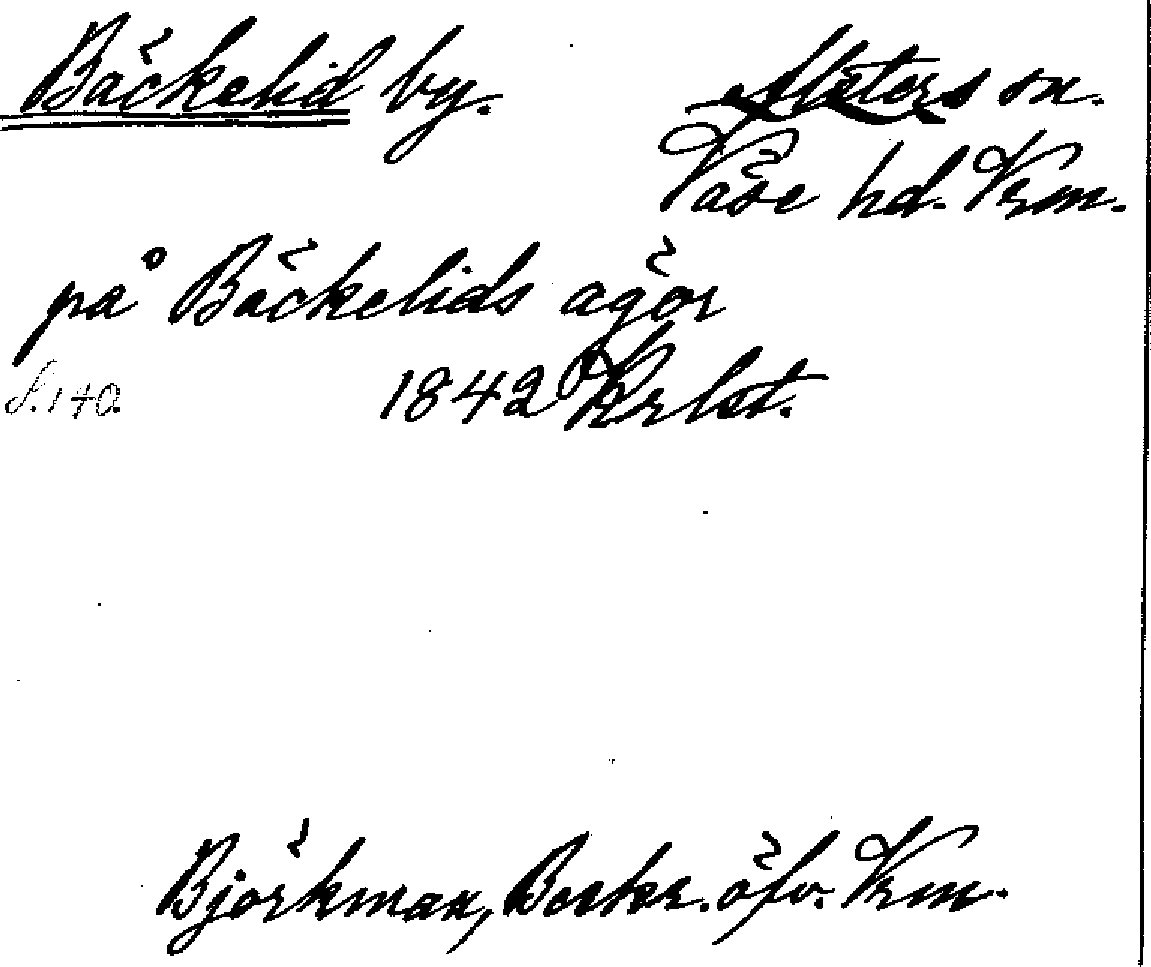 Bäckelid by. Alsters sn.
Väse hd. Vrm.
på Bäckelids ägor
S. 140. 1842 Krlst.
Björkman, Beskr. öfv. Vrm.